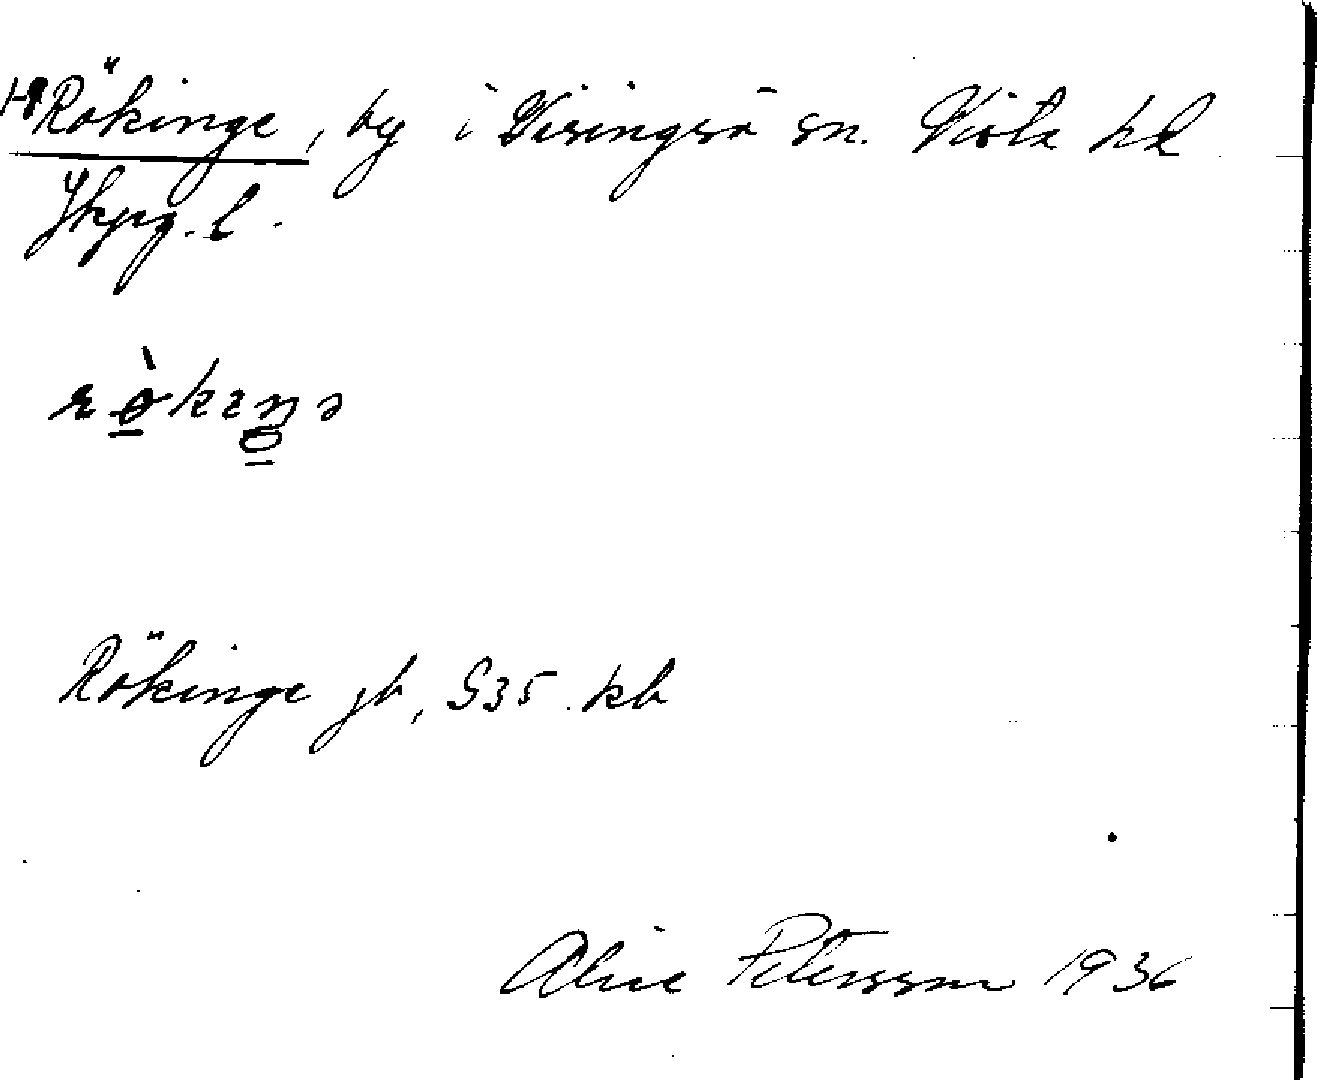 Rökinge, by i Visingsö sn. Vista hd
Jkpg. l.
rö̀keŋə
Rökinge jb, S35. kb
Alice Petersson 1936